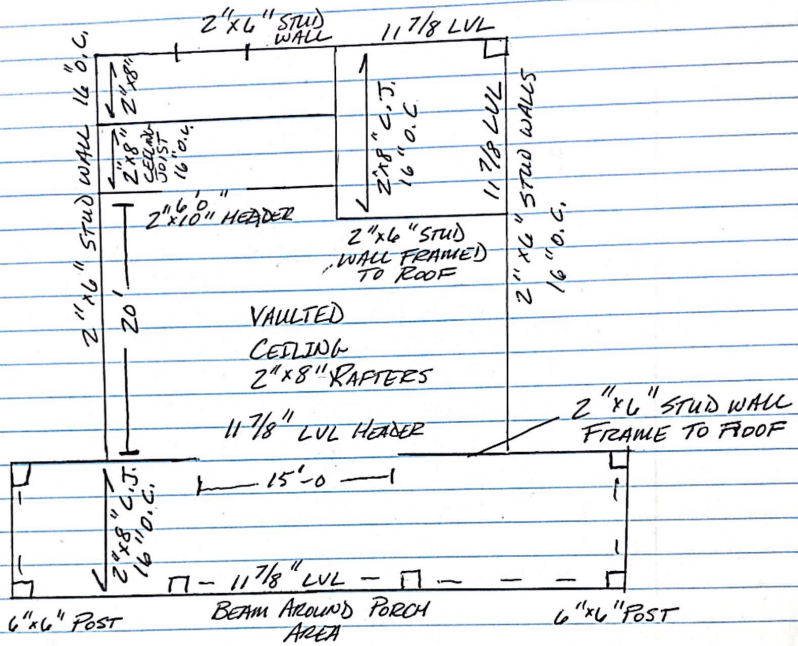 2"x6" STUD
WALL
11 7/8 LVL
2"x6" STUD WALL 16" O.C.
2"x8"
2"x8"
CEILING
JOIST
16" O.C.
2"x8" C.J.
16" O.C
11 7/8 LVL
2"x6" STUD WALLS
16" O.C.
6'0"
2"x10" HEADER
2"x6" STUD
WALL FRAMED
TO ROOF
20'
VAULTED
CEILING
2"x8" RAFTERS
11 7/8" LVL HEADER
2"x6" STUD WALL
FRAME TO ROOF
15'-0
2"x8" C.J.
16" O.C.
11 7/8" LVL
6"x6" POST
BEAM AROUND PORCH
AREA
6"x6" POST